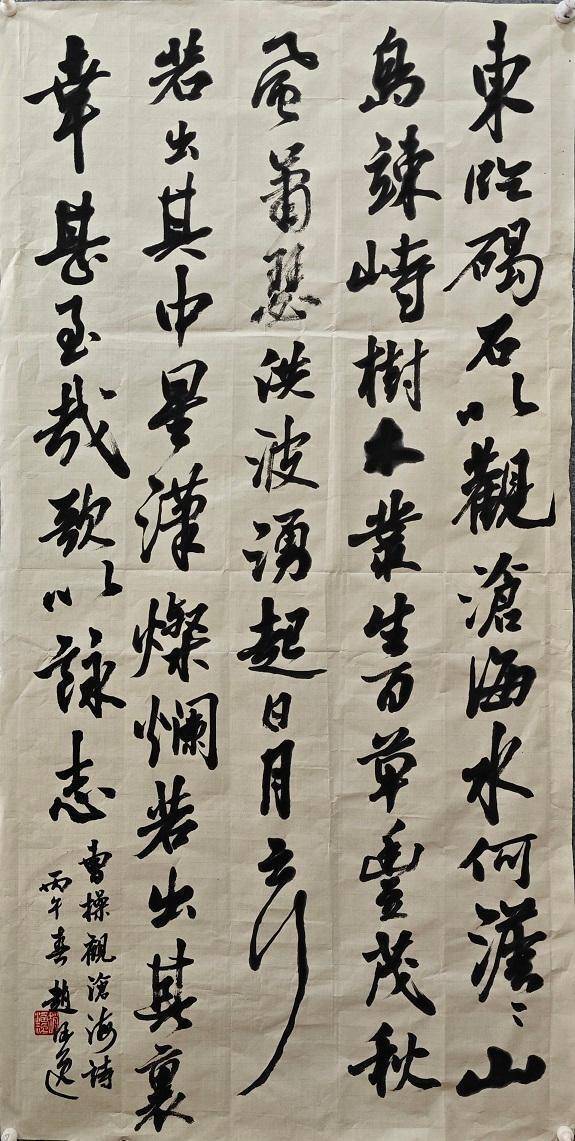 東臨碣石以觀滄海水何澹〻山
島竦峙樹木叢生百草豐茂秋
風蕭瑟洪波湧起日月之行
若出其中星漢燦爛若出其裏
幸甚至哉歌以詠志
曹操觀滄海詩
丙午春 趙